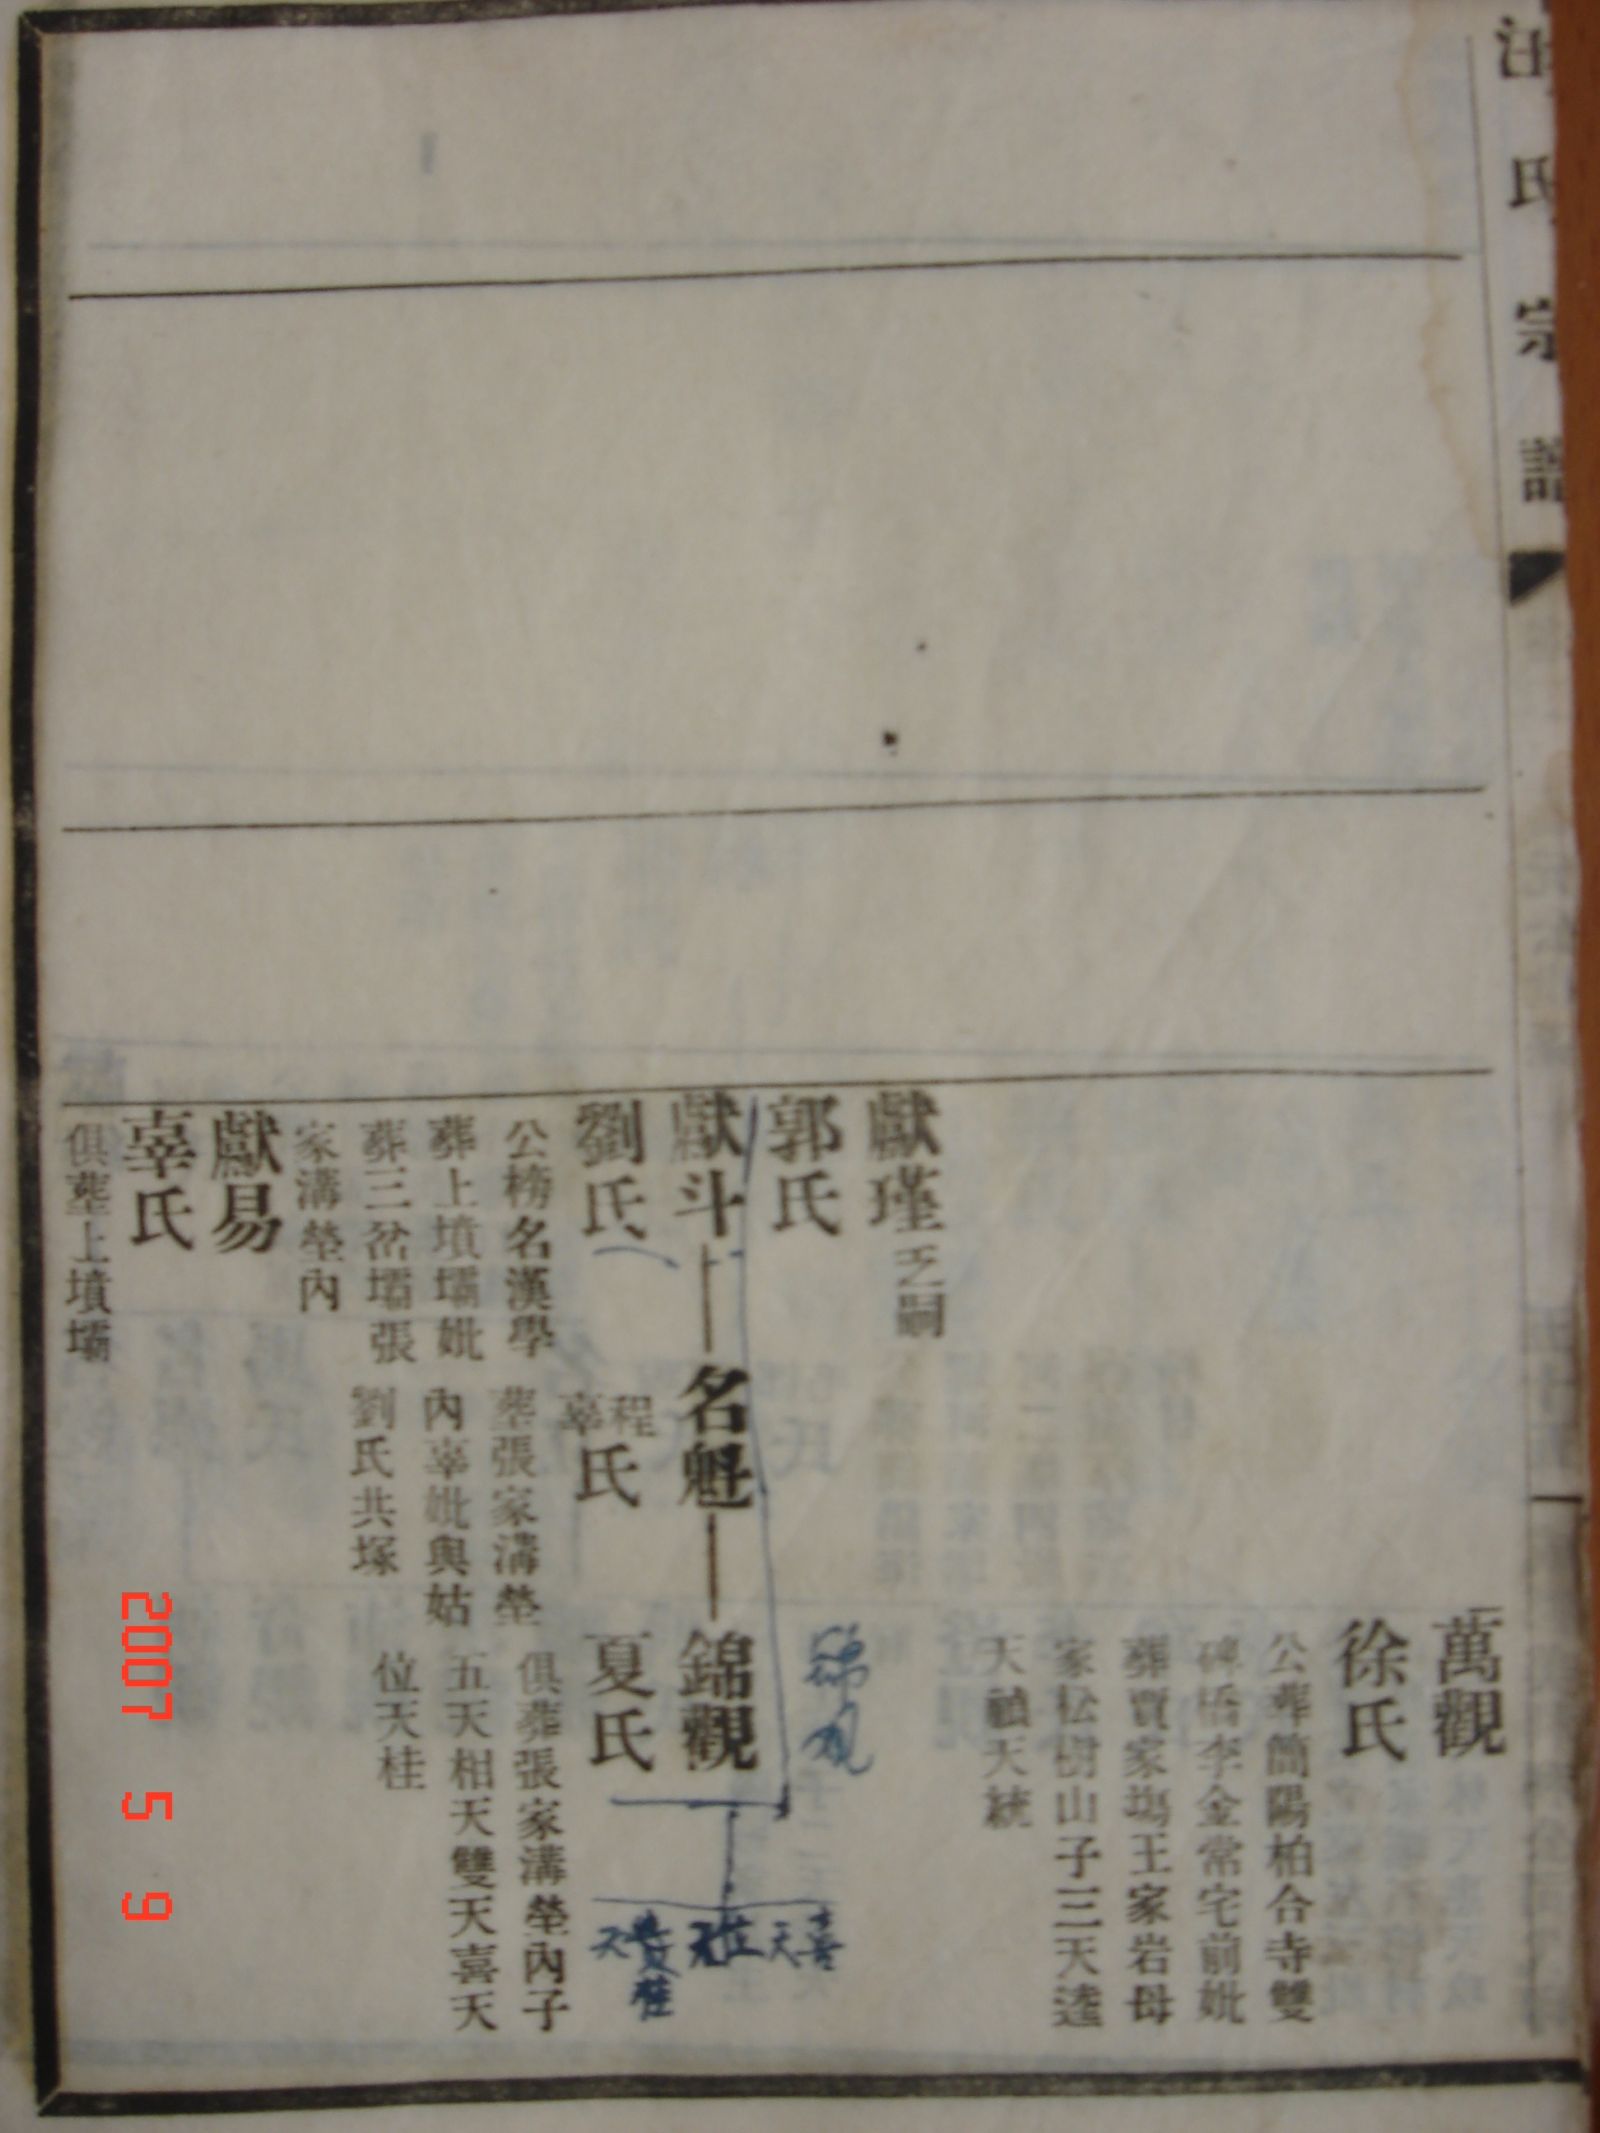 汪氏宗譜
萬觀
徐氏
公葬簡陽柏合寺雙
碑橋李金常宅前妣
葬賈家塆王家岩母
家松樹山子三天逵
天禎天統
獻瑾乏嗣
郭氏
獻斗
名魁
錦觀
锦观
劉氏
程辜氏
夏氏
公榜名漢學
葬上墳壩妣
葬三岔壩張
家溝塋內
葬張家溝塋
內辜妣與姑
劉氏共塚
俱葬張家溝塋內子
五天相天雙天喜天
位天桂
天喜
天位
天雙
桂
獻易
辜氏
俱葬上墳壩
2007 5 9